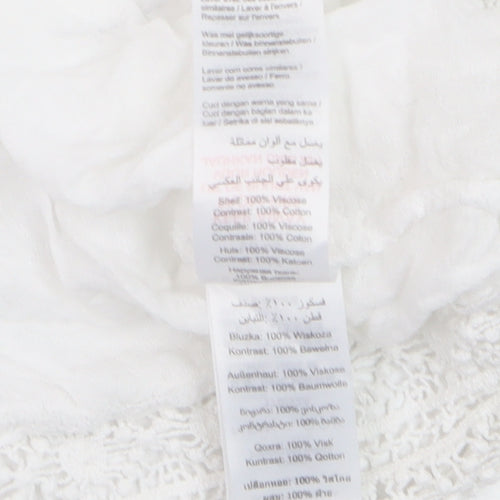 similaires / Laver à l'envers /
Repasser sur l'envers.
Was met gelijksoortige
kleuren / Was binnenstebuiten /
Binnenstebuiten strijken.
Lavar com cores similares /
Lavar do avesso / Ferro
somente no avesso.
Cuci dengan warna yang sama /
Cuci dengan bagian dalam ke
luar / Setrika di sisi sebaliknya
يغسل مع ألوان مماثلة
يغسل مقلوب
يكوى على الجانب العكسي
Shell: 100% Viscose
Contrast: 100% Cotton
Coquille: 100% Viscose
Contraste: 100% Coton
Huls: 100% Viscose
Contrast: 100% Katoen
فسكوز ١٠٠٪ :صدف
قطن ١٠٠٪ :التباين
Bluzka: 100% Wiskoza
Kontrast: 100% Bawełna
Außenhaut: 100% Viskose
Kontrast: 100% Baumwolle
100% ვისკოზა
კონტრასტი: 100% ბამბა
Qoxra: 100% Visk
Kuntrast: 100% Qotton
เปลือกนอก: 100% วิสโคส
100% ฝ้าย